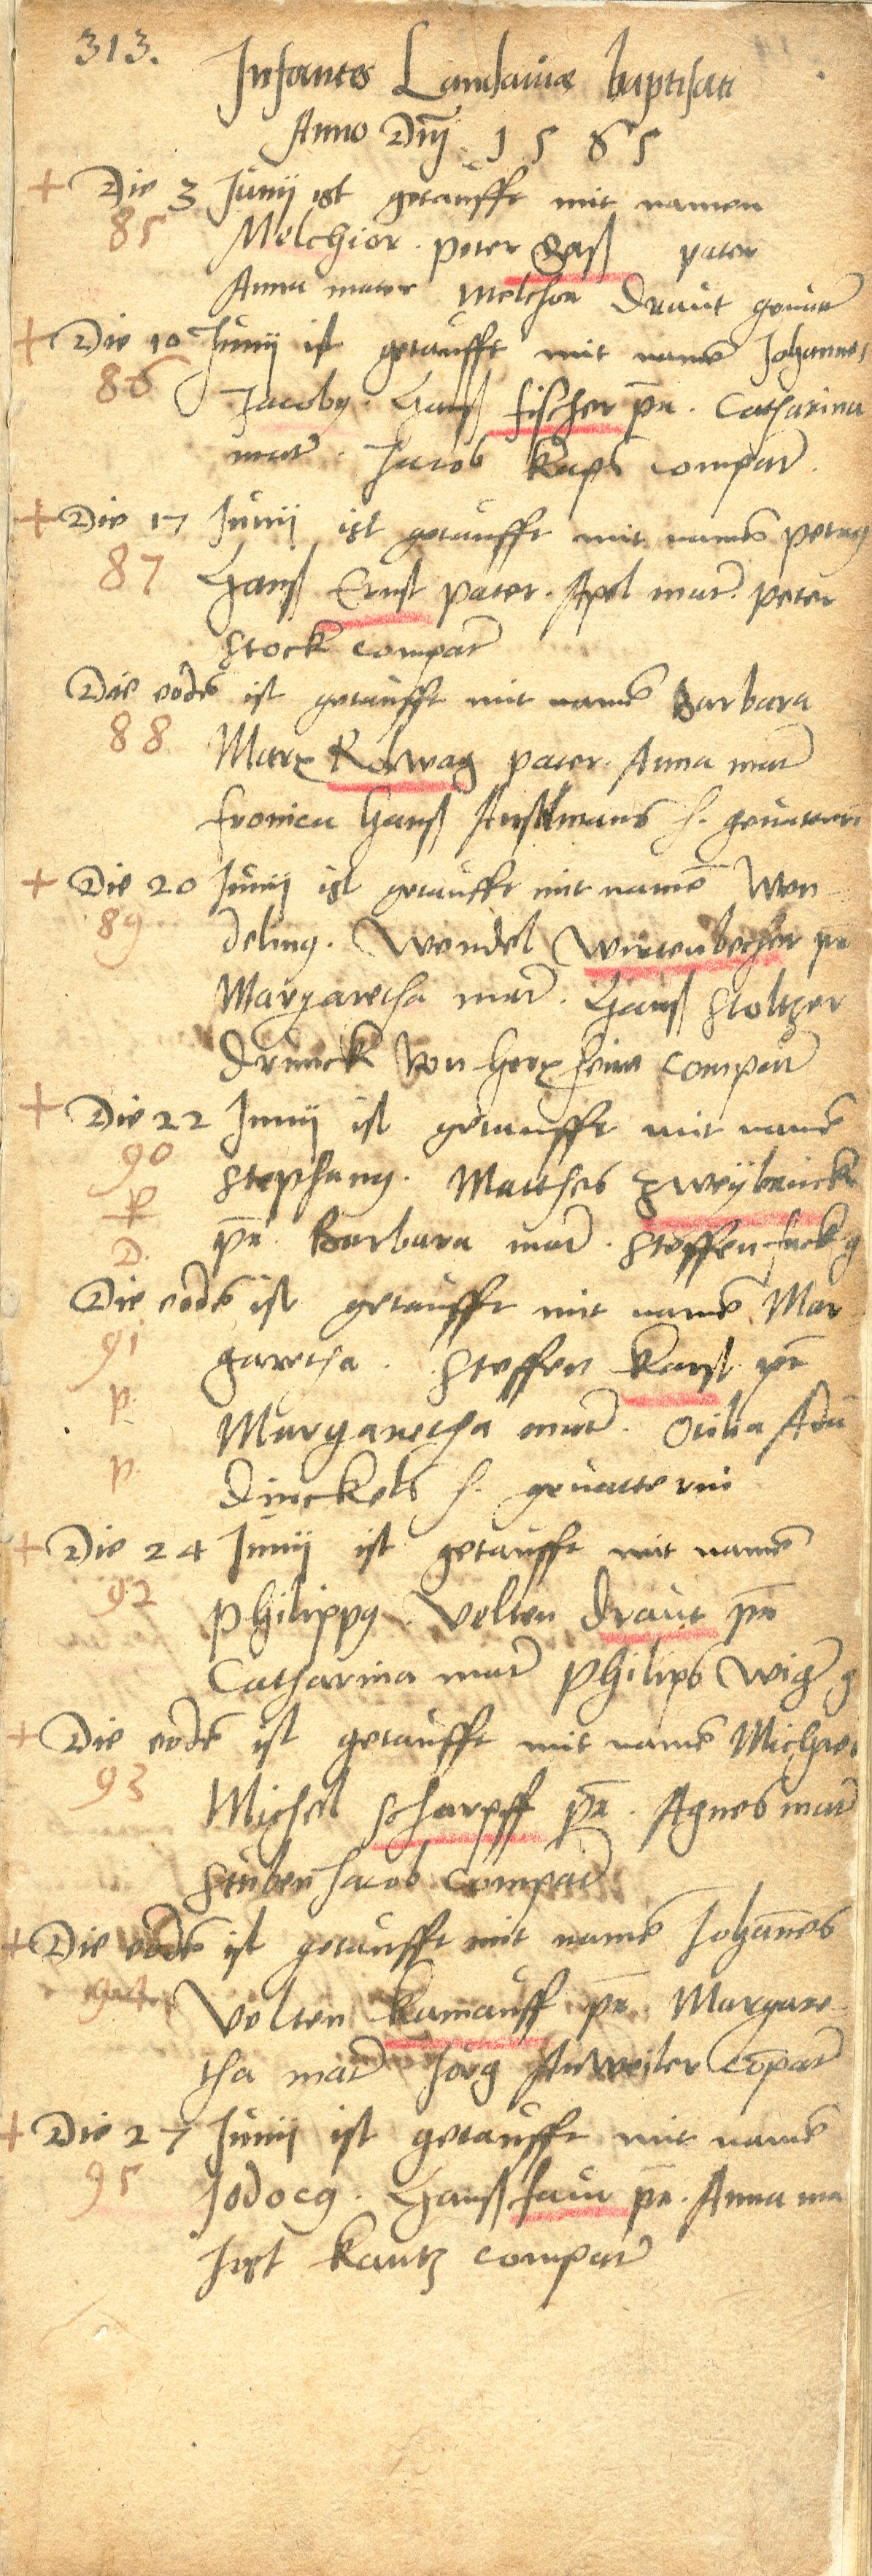 313.
Infantes Landauiæ baptisati
Anno Dnj 1 5 6 5
+ Die 3 Junij ist getaufft mit namen
85 Melchior. peter Saß pater
Anna mater Melchor Draut geuatr
+ Die 10 Junij ist getaufft mit namē Johannes
86 Jacoby. Hanß fischer pr̄. Catharina
matr. Jacob Raps compatr.
+ Die 17 Junij ist getaufft mit namē petrus
87 Hanß Ernst pater. Apel matr. peter
Stock compatr
Die eodē ist getaufft mit namē Barbara
88 Marx Rolwag pater. Anna matr
fronica Hanß Anstmans h. geuatterin
+ Die 20 Junij ist getaufft mit namē Wen-
89 delinus. Wendel Wirtenbecher pr
Margaretha matr. Hanß Stoltzen
Drinck von Herxheim compatr
+ Die 22 Junij ist getaufft mit namē
90 Stephanus. Matthes Zweÿbruck
P
D. pr̄. Barbara matr. Steffen g
Die eodē ist getaufft mit namē Mar
91 garetha. Steffen Karst pr̄
p. Margaretha matr. Otilia
p. Dinckels h. geuatterin
+ Die 24 Junij ist getaufft mit namē
92 Philippus Velten Draut pr̄
Catharina matr Philips Wiger g
+ Die eodē ist getaufft mit namē Michael
93 Michel Scharpff pr̄. Agnes matr
Stuben Jacob compatr
+ Die eodē ist getaufft mit namē Johānes
94 Velten Kamauff pr̄ Margare-
tha matr Jörg Anweiler cōpatr
+ Die 27 Junij ist getaufft mit namē
95 Jodocus. Hanß faut pr̄. Anna ma
Jost Kautz compatr